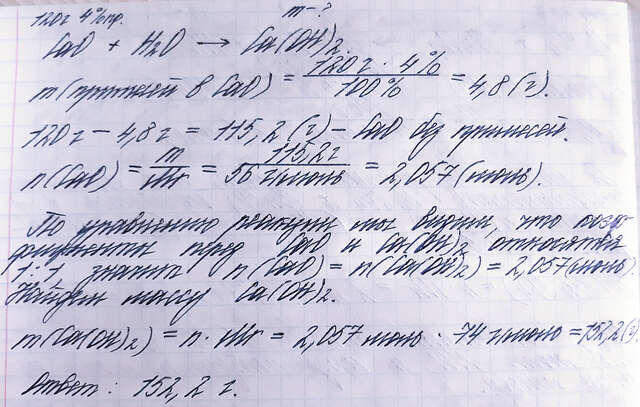 120г 4%пр. m-?
CaO + H₂O → Ca(OH)₂.
m(примесей в CaO) = 120г · 4% / 100% = 4,8(г).
120г - 4,8г = 115,2(г) - CaO без примесей.
n(CaO) = m / Mr = 115,2г / 56 г/моль = 2,057(моль).
По уравнению реакции мы видим, что коэф-
фициенты перед CaO и Ca(OH)₂ относятся
1:1, значит n(CaO) = n(Ca(OH)₂) = 2,057(моль)
Найдем массу Ca(OH)₂.
m(Ca(OH)₂) = n · Mr = 2,057 моль · 74 г/моль = 152,2(г).
Ответ: 152,2 г.